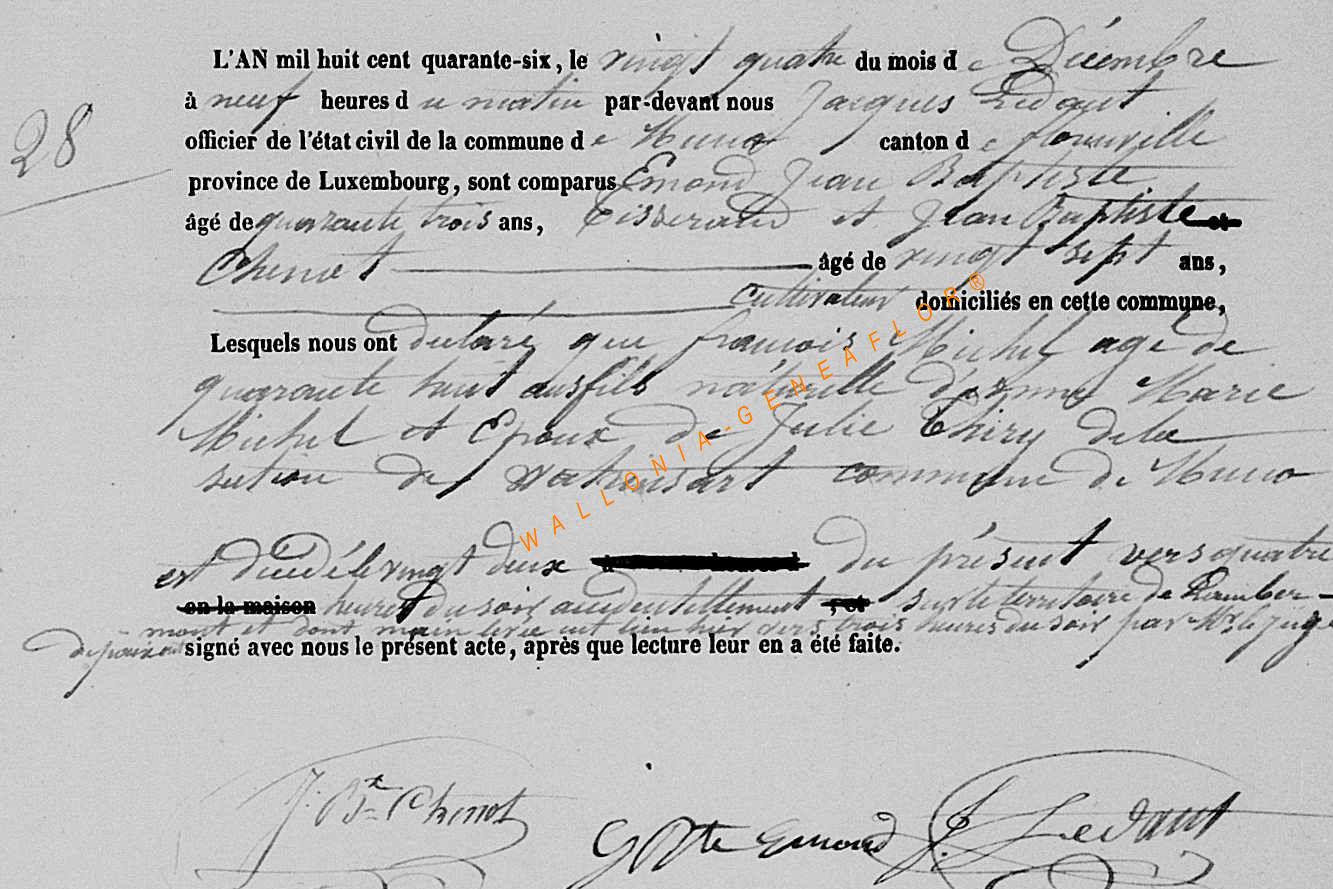 L'AN mil huit cent quarante-six, le vingt quatre du mois de Décembre
à neuf heures du matin par-devant nous Jacques Ledant
28
officier de l'état civil de la commune de Muno canton de florenville
province de Luxembourg, sont comparus Emond Jean Baptiste
âgé de quarante trois ans, Tisserand et Jean Baptiste et
Chenot âgé de vingt sept ans,
cultivateur domiciliés en cette commune,
WALLONIA-GENEAFLOR®
Lesquels nous ont declaré que francois Michel agé de
quarante huit ans fils naturelle d'Anne Marie
Michel et Epoux de Julie Thiry de la
section de Watrinsart commune de Muno
est décédé le vingt deux du présent vers quatre
en la maison heures du soir accidentellement , et sur le territoire de Lamber-
mont et dont main levée eut lieu hier vers trois heures du soir par Mr. le juge
de paix signé avec nous le présent acte, après que lecture leur en a été faite.
J. Bte Chenot
J Bte Emond
J. Ledant